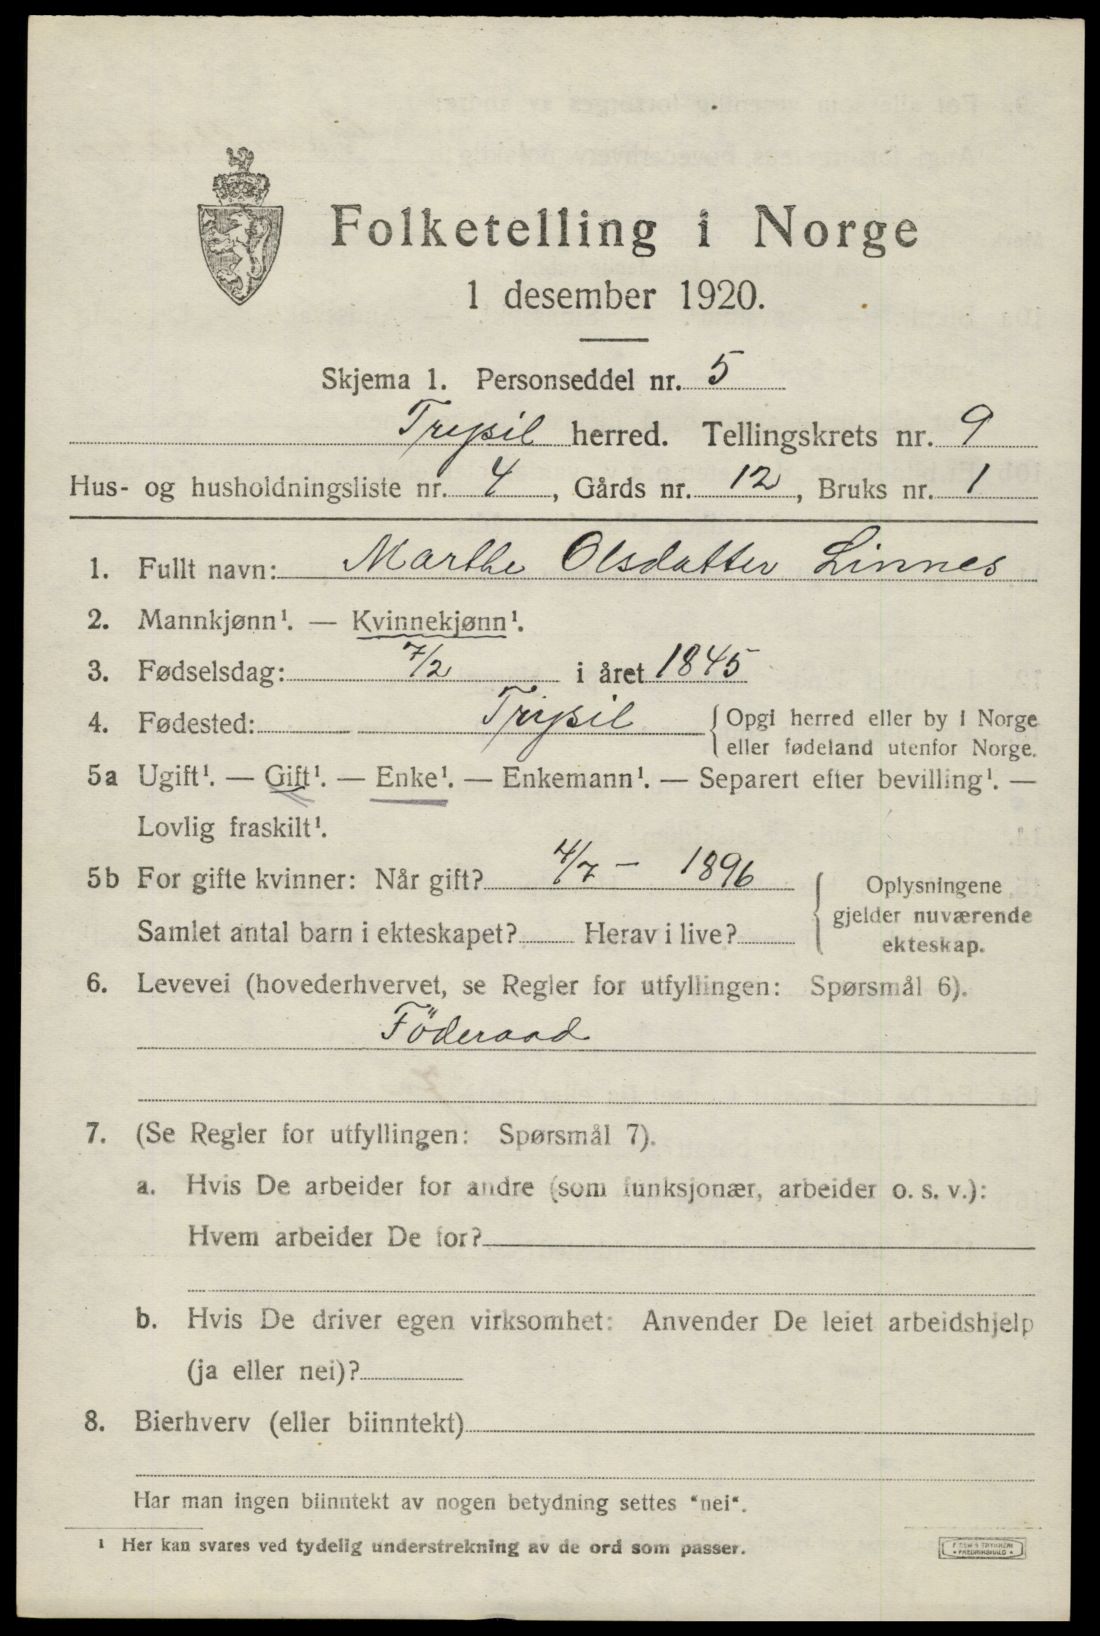 Folketelling i Norge
1 desember 1920.
Skjema 1. Personseddel nr. 5
Trysil herred. Tellingskrets nr. 9
Hus- og husholdningsliste nr. 4, Gårds nr. 12, Bruks nr. 1
1. Fullt navn: Marthe Olsdatter Linnes
2. Mannkjønn¹. — Kvinnekjønn¹.
3. Fødselsdag: 7/2 i året 1845
4. Fødested: Trysil {Opgi herred eller by i Norge
eller fødeland utenfor Norge.
5a Ugift¹. — Gift¹. — Enke¹. — Enkemann¹. — Separert efter bevilling¹. —
Lovlig fraskilt¹.
5b For gifte kvinner: Når gift? 4/7 – 1896
Samlet antal barn i ekteskapet? Herav i live?
{Oplysningene
gjelder nuværende
ekteskap.
6. Levevei (hovederhvervet, se Regler for utfyllingen: Spørsmål 6).
Föderaad
7. (Se Regler for utfyllingen: Spørsmål 7).
a. Hvis De arbeider for andre (som funksjonær, arbeider o. s. v.):
Hvem arbeider De for?
b. Hvis De driver egen virksomhet: Anvender De leiet arbeidshjelp
(ja eller nei)?
8. Bierhverv (eller biinntekt)
Har man ingen biinntekt av nogen betydning settes "nei".
¹ Her kan svares ved tydelig understrekning av de ord som passer.